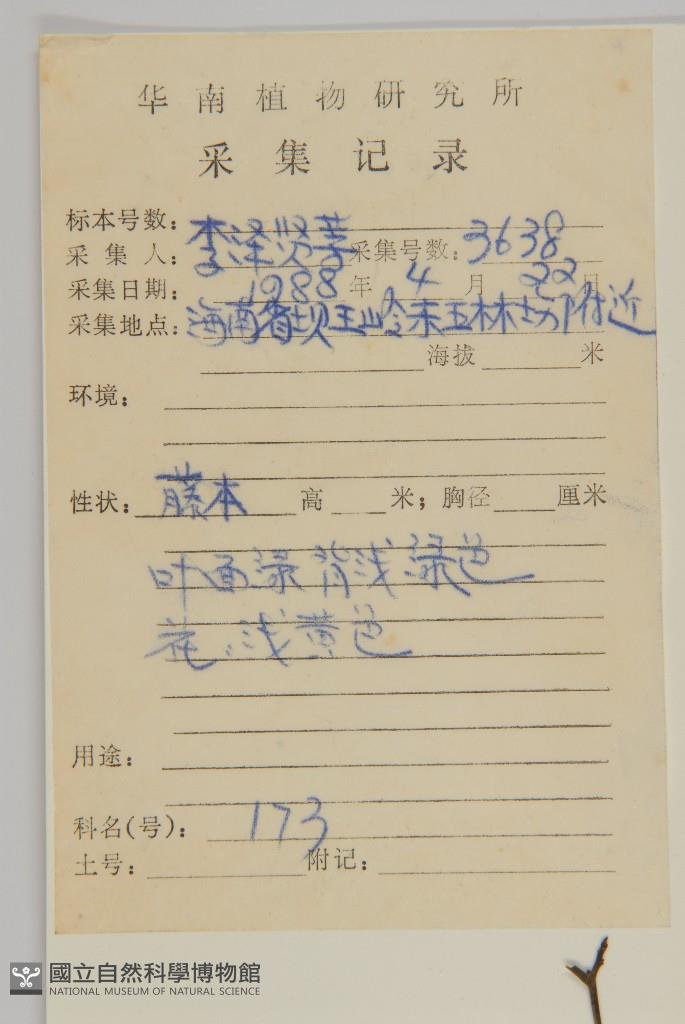 华南植物研究所
采集记录
标本号数：
采集人：李泽贤等 采集号数：3638
采集日期：1988年4月22日
采集地点：海南省坝王岭东五林场附近
海拔 米
环境：
性状：藤本 高 米；胸径 厘米
叶面绿背浅绿色
花、浅黄色
用途：
科名(号)：173
土号： 附记：
國立自然科學博物館
NATIONAL MUSEUM OF NATURAL SCIENCE